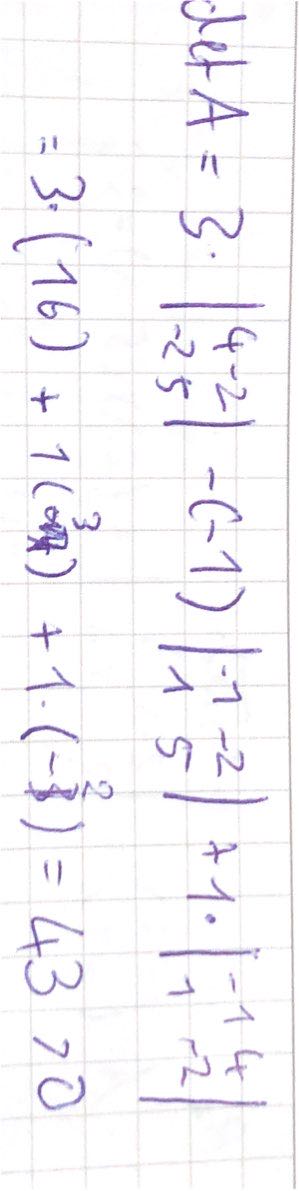 det A = 3· |4 -2 / -2 5| -(-1) |-1 -2 / 1 5| +1· |-1 4 / 1 -2|
= 3·(16) + 1(3) + 1·(-2) = 43 >0